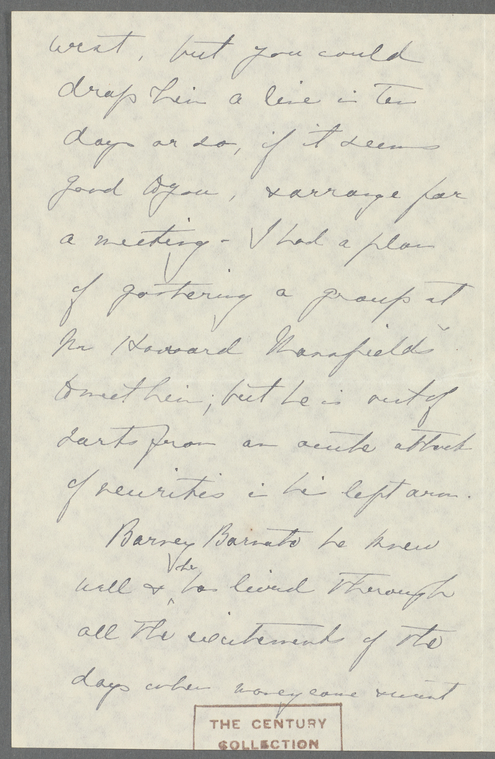 went, but you could
drop him a line in ten
days or so, if it seems
good to you, & arrange for
a meeting - I had a plan
of gathering a group at
Mr Howard Mansfield's
to meet him; but he is out of
sorts from an acute attack
of neuritis in his left arm.
Barney Barnato he knew
well & he has lived through
all the excitements of the
days when money came & went
THE CENTURY
COLLECTION